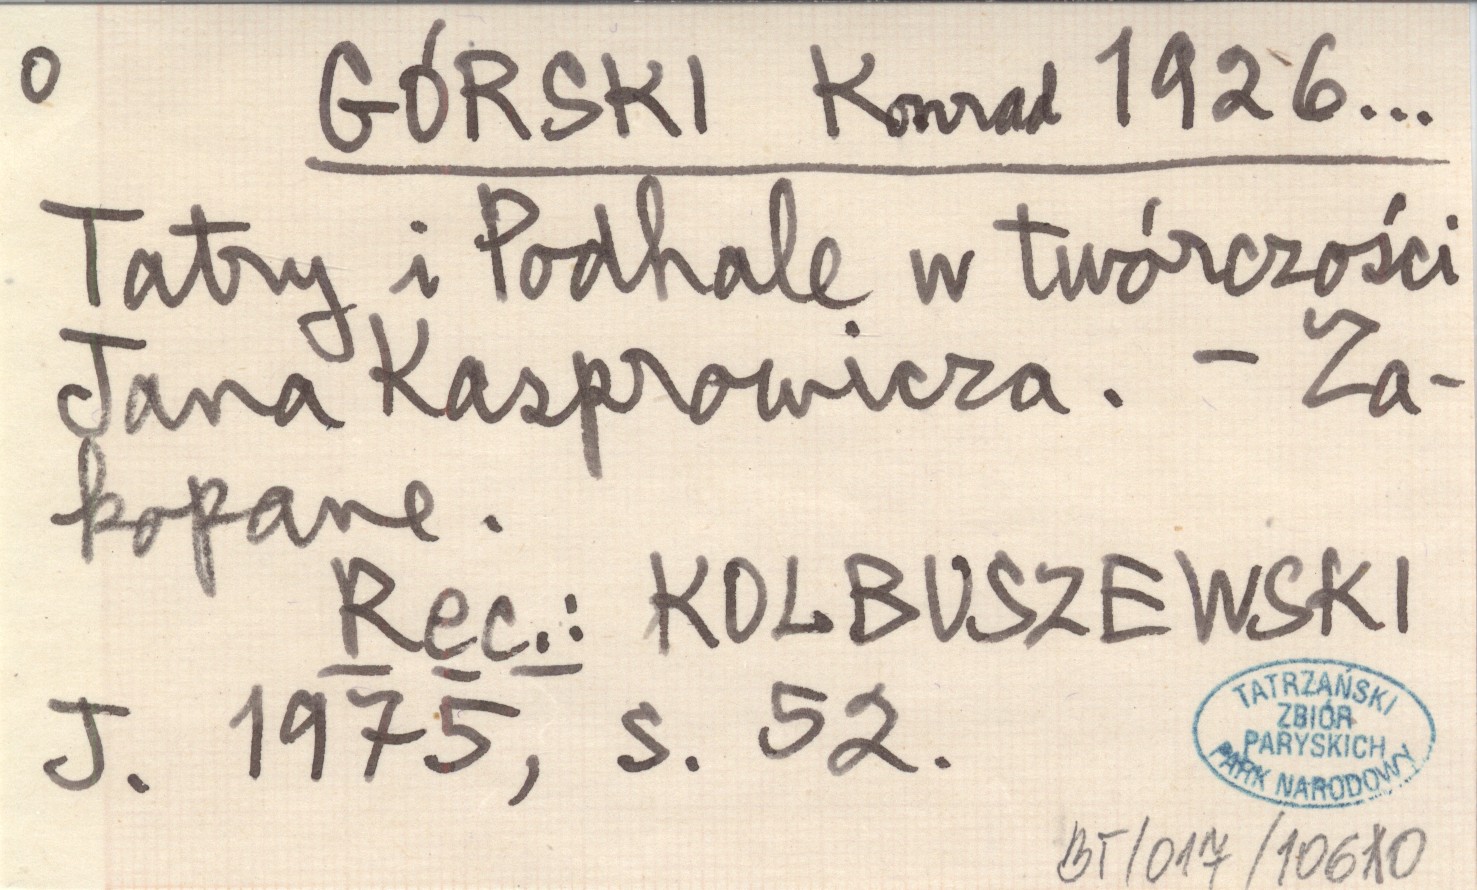 o
GÓRSKI Konrad 1926...
Tatry i Podhale w twórczości
Jana Kasprowicza. - Za-
kopane.
Rec.: KOLBUSZEWSKI
J. 1975, s. 52.
TATRZAŃSKI
ZBIÓR
PARYSKICH
PARK NARODOWY
BT/017/10610